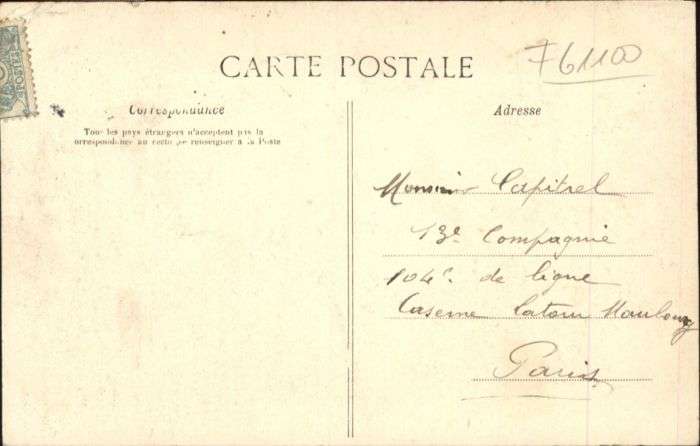 CARTE POSTALE
76110
Correspondance
Tous les pays étrangers n'acceptent pas la
correspondance au recto se renseigner à la Poste
Adresse
Monsieur Capitrel
13e Compagnie
104e de ligne
Caserne Latour Maubourg
Paris